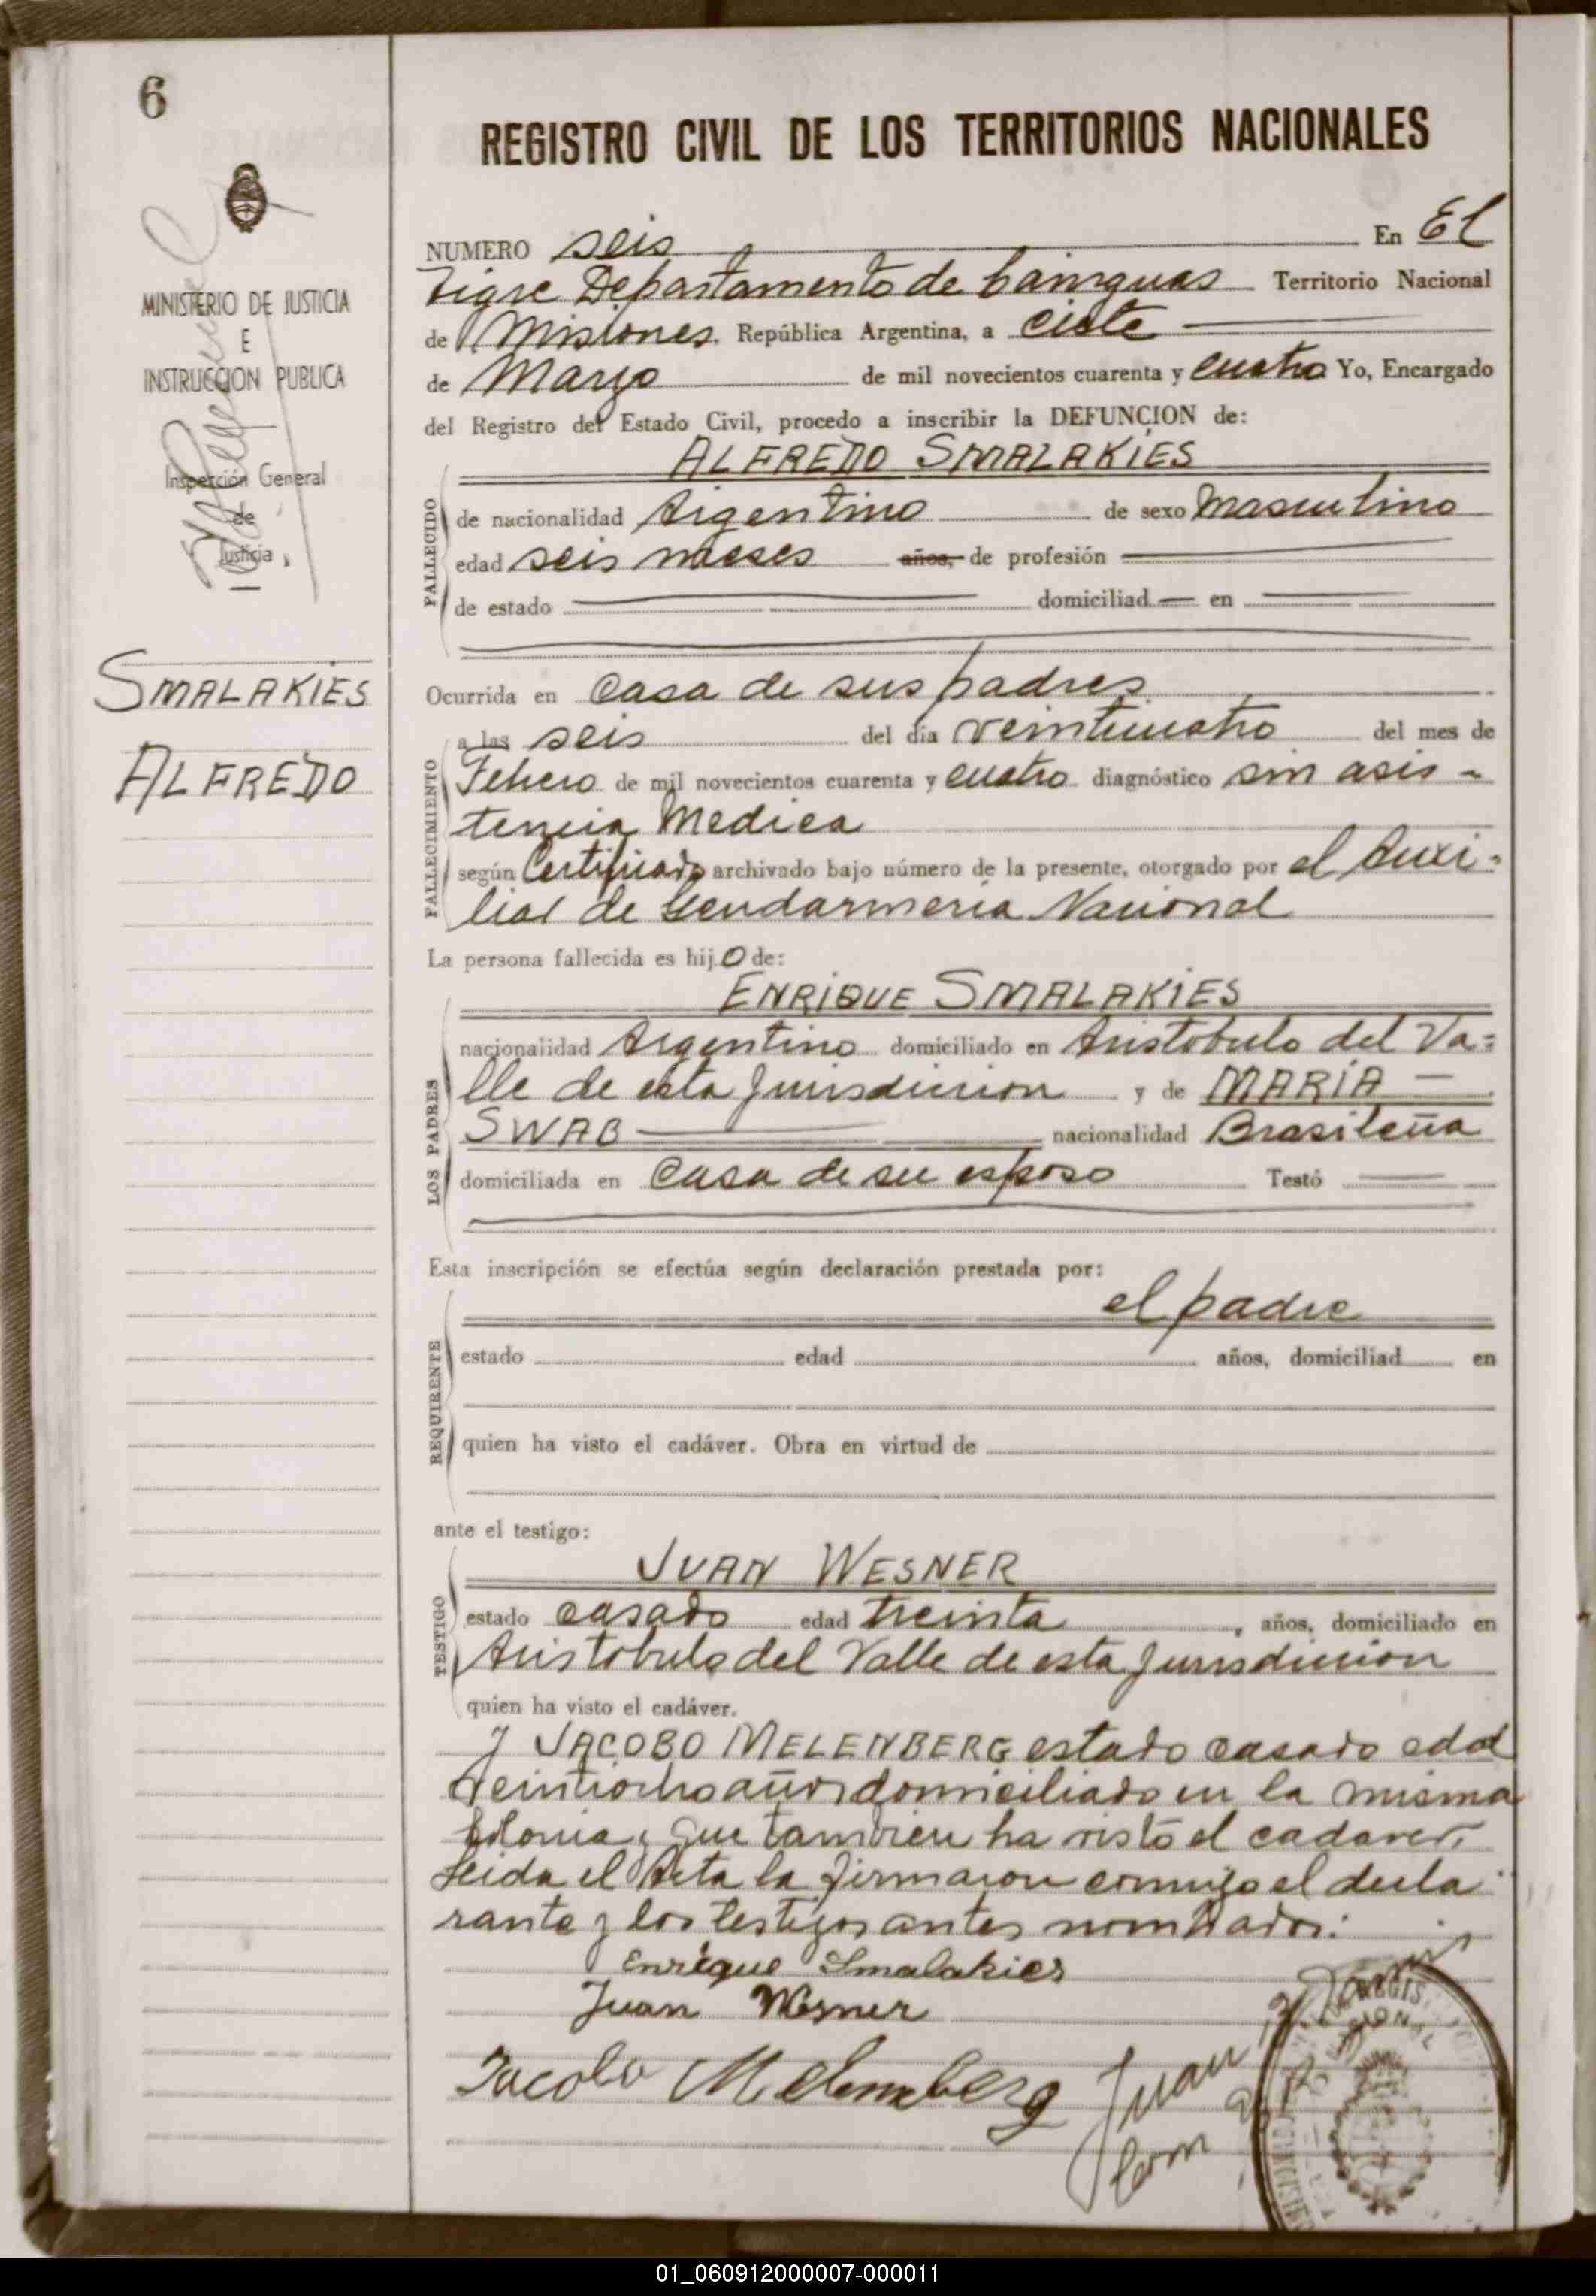 6
REGISTRO CIVIL DE LOS TERRITORIOS NACIONALES
MINISTERIO DE JUSTICIA
E
INSTRUCCION PUBLICA
Inspección General
de
Justicia
SMALAKIES
ALFREDO
NUMERO seis En El
Tigre Departamento de Cainguas Territorio Nacional
de Misiones, República Argentina, a ciete
de Marzo de mil novecientos cuarenta y cuatro Yo, Encargado
del Registro del Estado Civil, procedo a inscribir la DEFUNCION de:
ALFREDO SMALAKIES
FALLECIDO
de nacionalidad Argentino de sexo Masculino
edad seis meses años, de profesión
de estado domiciliad en
Ocurrida en Casa de sus padres
FALLECIMIENTO
a las seis del día veinticuatro del mes de
Febrero de mil novecientos cuarenta y cuatro diagnóstico sin asis-
tencia Medica
según Certificado archivado bajo número de la presente, otorgado por el Auxi-
liar de Gendarmeria Nacional
La persona fallecida es hijo de:
ENRIQUE SMALAKIES
LOS PADRES
nacionalidad Argentino domiciliado en Aristobulo del Va=
lle de esta Jurisdicion y de MARIA
SWAB nacionalidad Brasileña
domiciliada en Casa de su esposo Testó
Esta inscripción se efectúa según declaración prestada por:
el padre
REQUIRENTE
estado edad años, domiciliad en
quien ha visto el cadáver. Obra en virtud de
ante el testigo:
JUAN WESNER
TESTIGO
estado casado edad treinta, años, domiciliado en
Aristobulo del Valle de esta Jurisdicion
quien ha visto el cadáver.
y JACOBO MELENBERG estado casado edad
veintiocho años domiciliado en la misma
Colonia, que tambien ha visto el cadaver.
Leida el Acta la firmaron conmigo el decla
rante y los testigos antes nombrados:
Enrique Smalakies
Juan Wesner
Jacobo Melemberg Juan
01_060912000007-000011